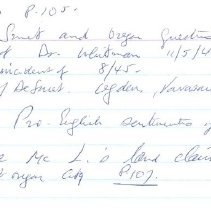 P.105.
Smet and Oregon Question
of Dr. Whitman 11/5/4
incident of 8/45.
of De Smet. Ogden, Vavasou
Pro. English sentiments of
Mc L.'s land claim
Oregon City P107.